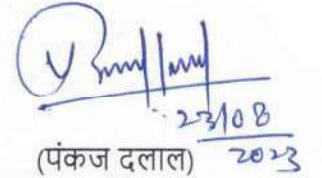 23/08
(पंकज दलाल) 2023